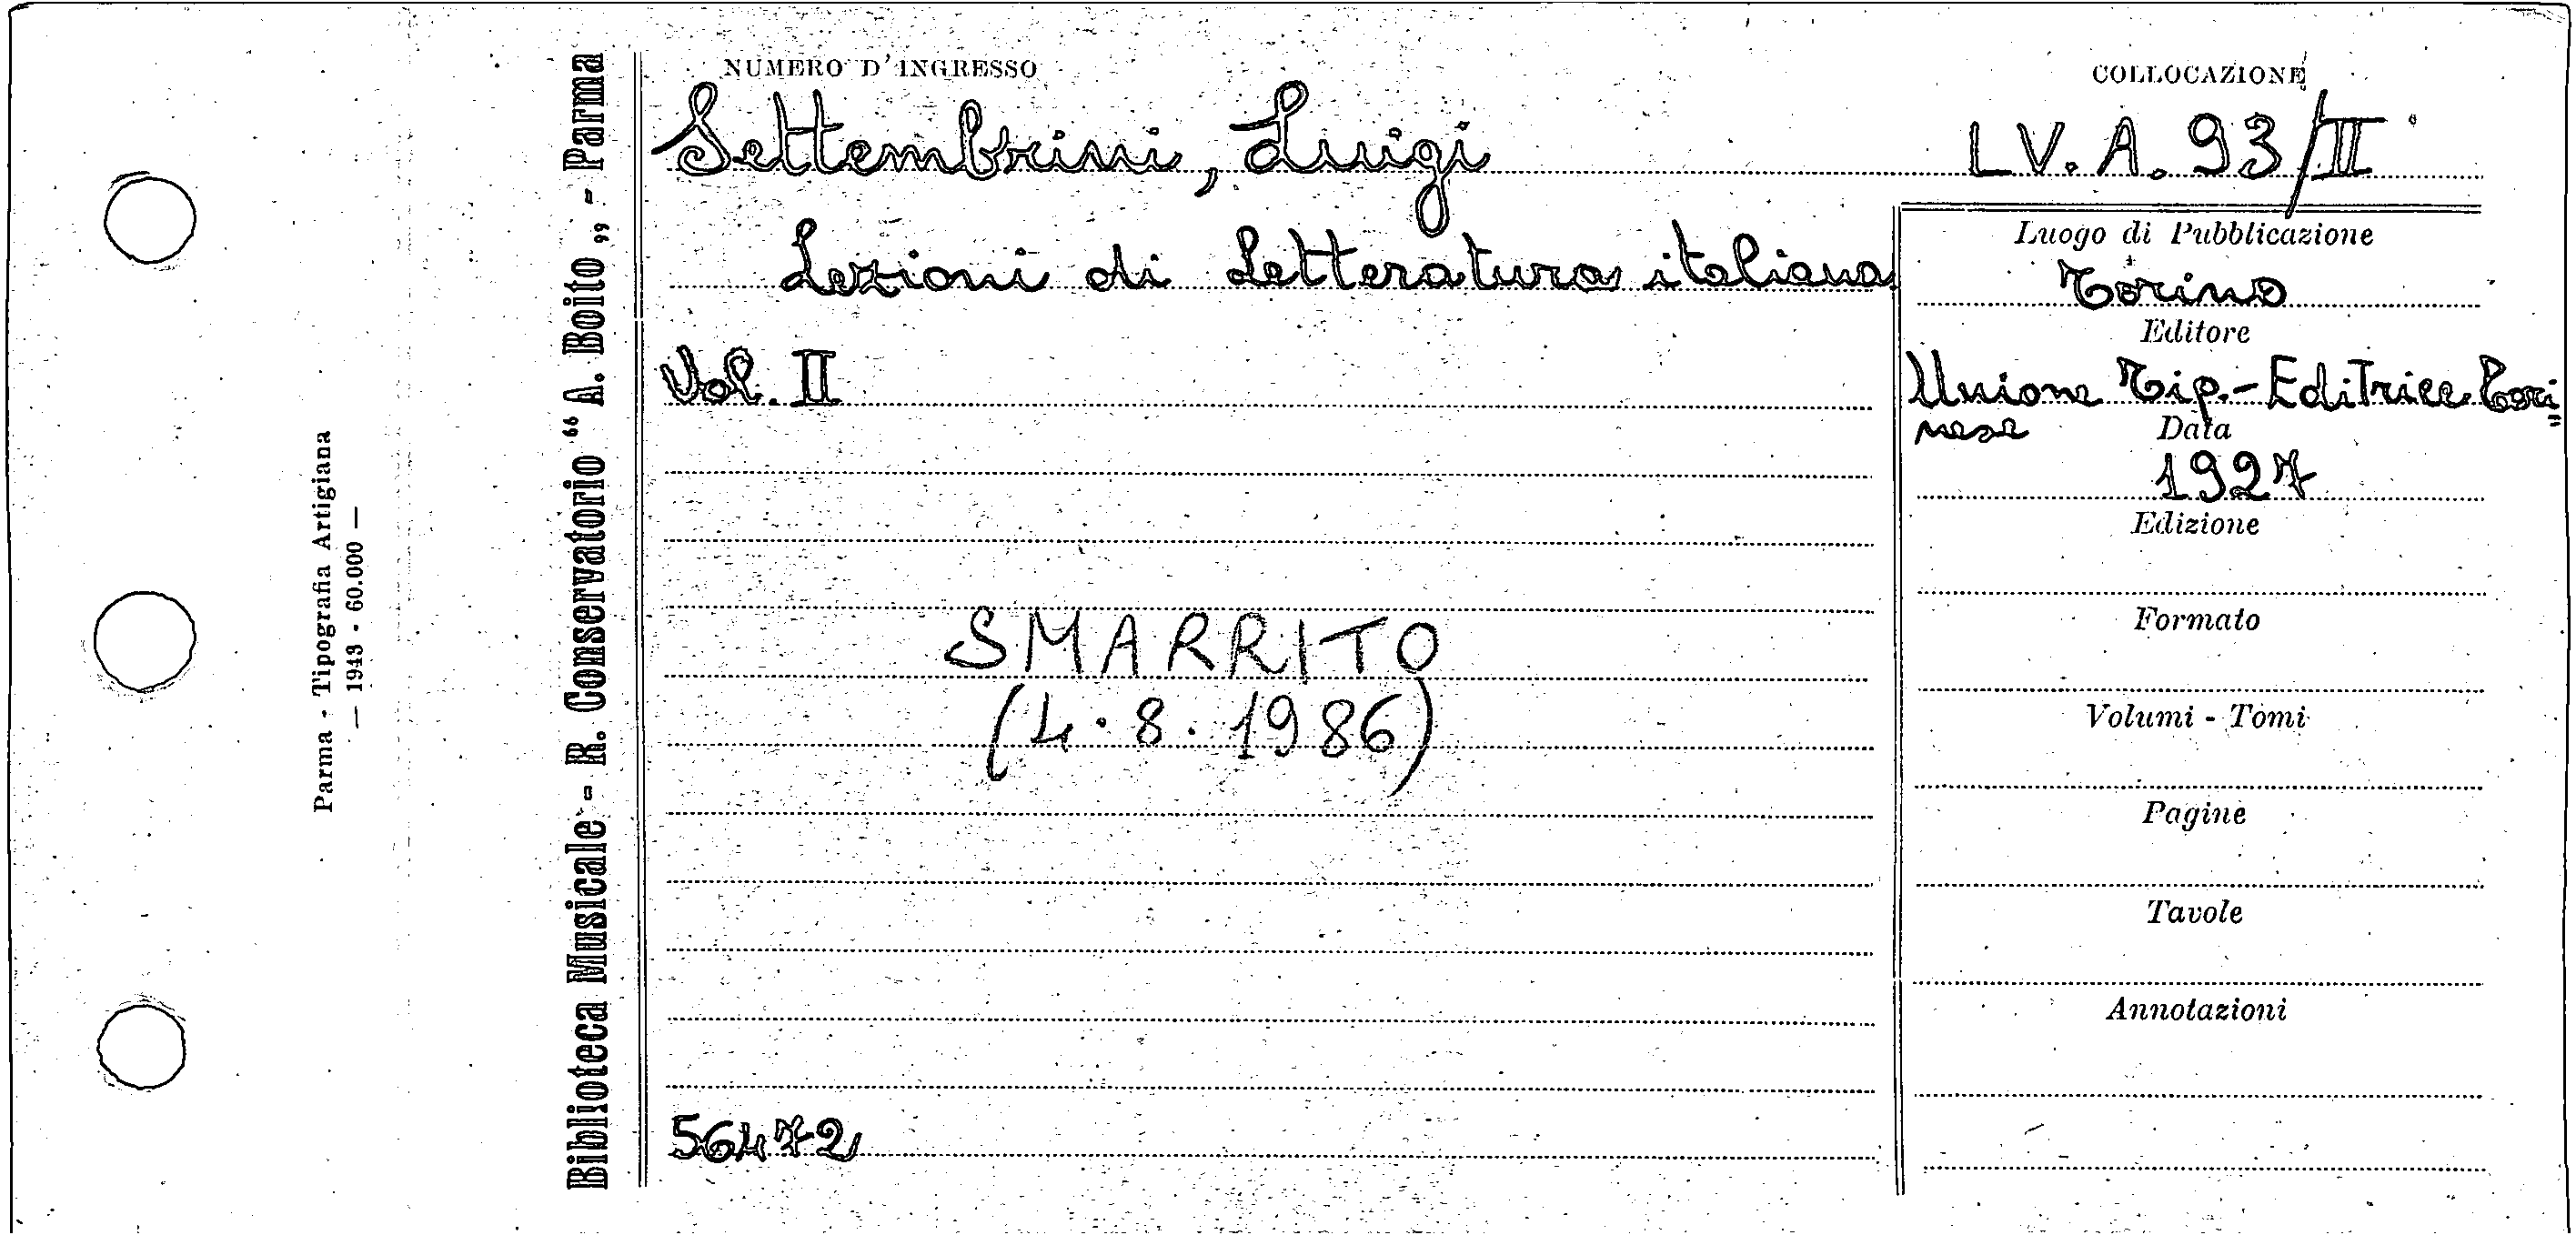 Parma - Tipografia Artigiana
— 1943 - 60.000 —
Biblioteca Musicale - R. Conservatorio “ A. Boito „ - Parma
NUMERO D'INGRESSO
COLLOCAZIONE
Settembrini, Luigi
LV. A. 93/II
Lezioni di Letteratura italiana
Vol. II
Luogo di Pubblicazione
Torino
Editore
Unione Tip.-Editrice Tori=
nese
Data
1927
Edizione
Formato
Volumi - Tomi
Pagine
Tavole
Annotazioni
SMARRITO
(4.8.1986)
56472